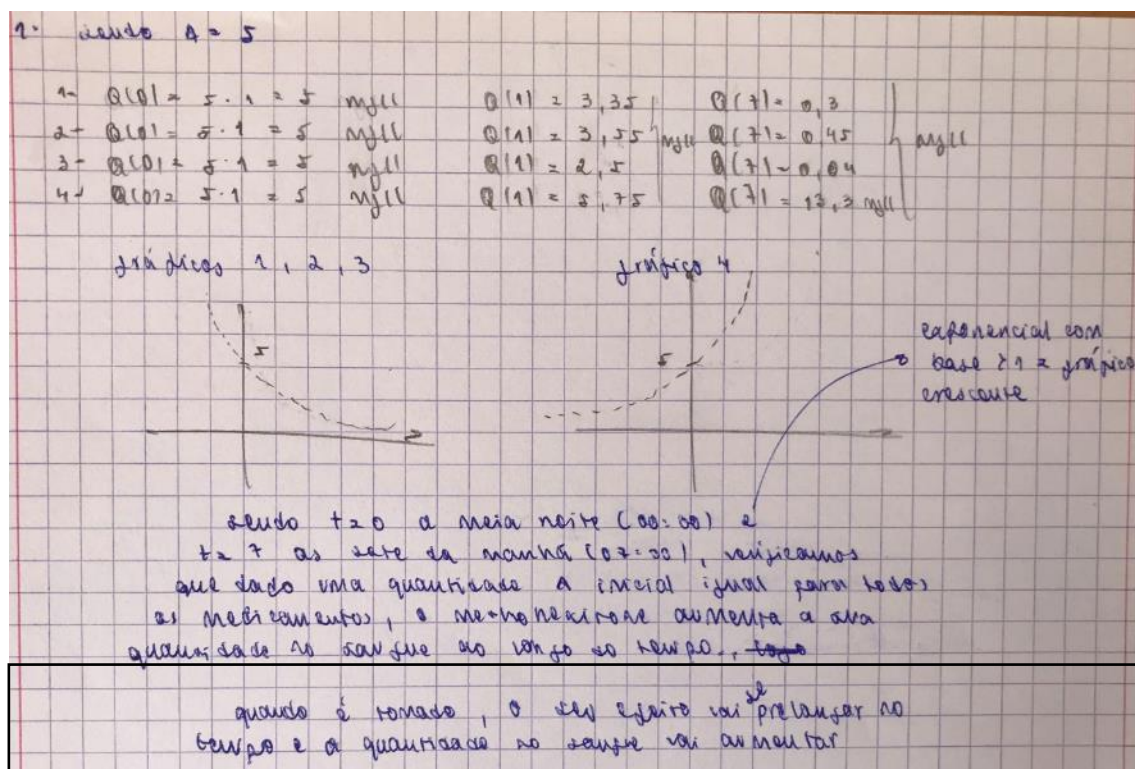 1. sendo A = 5
1- Q(0) = 5 · 1 = 5 mg/l Q(1) = 3,35 Q(7) = 0,3
2- Q(0) = 5 · 1 = 5 mg/l Q(1) = 3,55 mg/l Q(7) = 0,45 mg/l
3- Q(0) = 5 · 1 = 5 mg/l Q(1) = 2,5 Q(7) = 0,04
4- Q(0) = 5 · 1 = 5 mg/l Q(1) = 5,75 Q(7) = 13,3 mg/l
gráficos 1, 2, 3 gráfico 4
5 5
exponencial com
base > 1 = gráfico
crescente
sendo t = 0 a meia noite (00:00) e
t = 7 as sete da manhã (07:00), verificamos
que dado uma quantidade A inicial igual para todos
os medicamentos, o aumenta a sua
quantidade no sangue ao longo do tempo.,
quando é tomado, o seu efeito vai se prolongar no
tempo e a quantidade no sangue vai aumentar